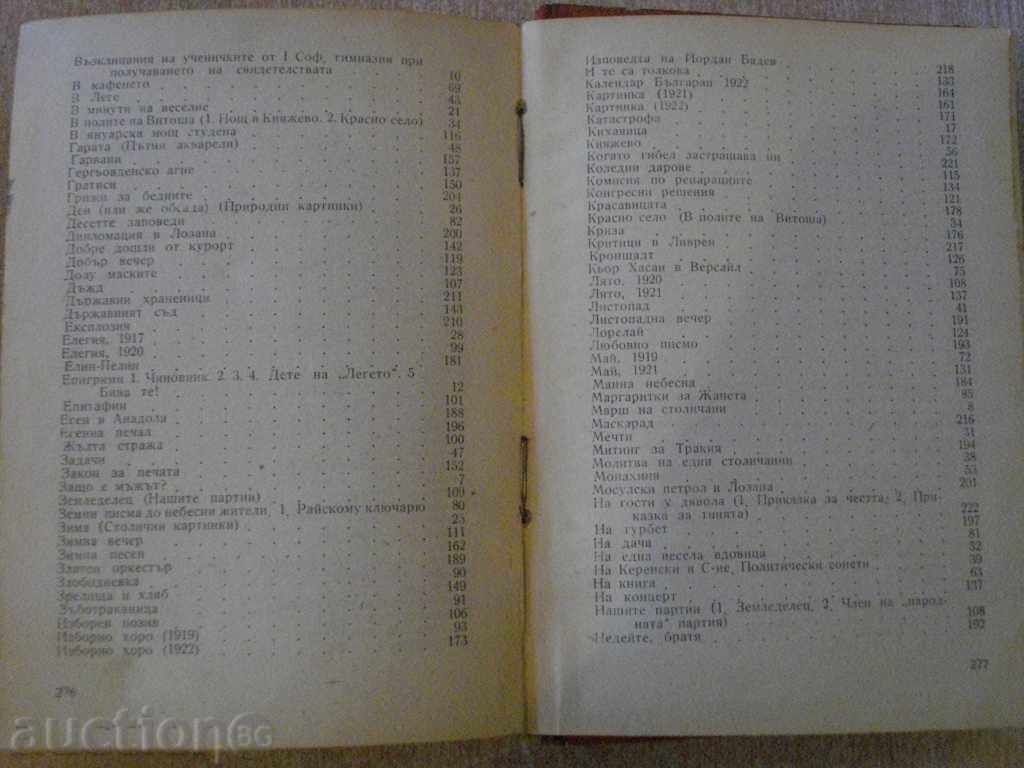 Възклицания на ученичките от I Соф. гимназия при
получаването на свидетелствата . . . 10
В кафенето . . . 69
В Лете . . . 43
В минути на веселие . . . 21
В полите на Витоша (1. Нощ в Княжево. 2. Красно село) 34
В януарска нощ студена . . . 116
Гарата (Пътни акварели) . . . 48
Гарвани . . . 157
Гергьовденско агне . . . 137
Гратиси . . . 150
Грижи за бедните . . . 204
Ден (или же обсада) (Природни картинки) . . . 26
Десетте заповеди . . . 82
Дипломация в Лозана . . . 200
Добре дошли от курорт . . . 142
Добър вечер . . . 119
Долу маските . . . 123
Дъжд . . . 107
Държавни храненици . . . 211
Държавният съд . . . 143
Експлозия . . . 210
Елегия, 1917 . . . 28
Елегия, 1920 . . . 99
Елин-Пелин . . . 181
Епиграми 1. Чиновник. 2. 3. 4. Дете на „Легето“. 5
Бива те! . . . 12
Епитафии . . . 101
Есен в Анадола . . . 188
Есенна печал . . . 196
Жълта стража . . . 100
Задачи . . . 47
Закон за печата . . . 152
Защо е мъжът? . . . 7
Земеделец (Нашите партии) . . . 109
Земни писма до небесни жители. 1. Райскому ключарю 80
Зима (Столични картинки) . . . 23
Зимна вечер . . . 111
Зимна песен . . . 162
Златен оркестър . . . 189
Злободневка . . . 90
Зрелища и хляб . . . 149
Зъботраканица . . . 91
Изборен позив . . . 106
Изборно хоро (1919) . . . 93
Изборно хоро (1922) . . . 173
276
Изповедта на Йордан Бадев . . . 218
И те са толкова . . . 133
Календар Българан 1922 . . . 164
Картинка (1921) . . . 161
Картинка (1922) . . . 171
Катастрофа . . . 17
Киханица . . . 172
Княжево . . . 56
Когато гибел застрашава ни . . . 221
Коледни дарове . . . 115
Комисия по репарациите . . . 134
Конгресни решения . . . 121
Красавицата . . . 178
Красно село (В полите на Витоша) . . . 34
Криза . . . 176
Критици в Ливрен . . . 217
Кронщалт . . . 126
Кьор Хасан в Версайл . . . 75
Лято, 1920 . . . 108
Лято, 1921 . . . 137
Листопад . . . 41
Листопадна вечер . . . 191
Лорелай . . . 124
Любовно писмо . . . 193
Май, 1919 . . . 72
Май, 1921 . . . 131
Манна небесна . . . 184
Маргаритки за Жанета . . . 85
Марш на столичани . . . 8
Маскарад . . . 216
Мечти . . . 31
Митинг за Тракия . . . 194
Молитва на едни столичанин . . . 38
Монахиня . . . 53
Мосулски петрол в Лозана . . . 201
На гости у дявола (1. Приказка за честта; 2. При-
казка за тинята) . . . 222
На гурбет . . . 197
На дача . . . 81
На една весела вдовица . . . 32
На Керенски в С-ие. Политически сонети . . . 39
На книга . . . 63
На концерт . . . 137
Нашите партии (1. Земледелец, 2. Член на „народ-
ната“ партия) . . . 108
Недейте, братя . . . 192
277
аукционБГ